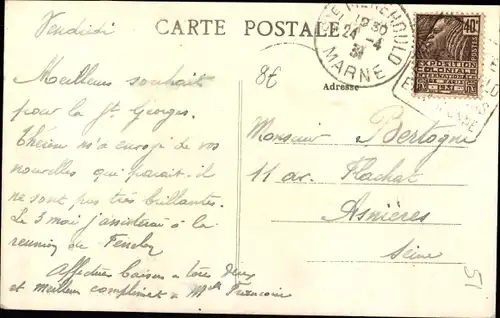 Vendredi
CARTE POSTALE
Adresse
STE MENEHOULD
1930
24 -4
31
MARNE
40c
EXPOSITION
1931
8€
Meilleurs souhaits
pour la St Georges.
Thérèse m'a envoyé de vos
nouvelles qui parait-il
ne sont pas très brillantes.
Le 3 mai j'assisterai à la
reunion de
Affectueux baisers à tous deux
et meilleurs compliments à Melle Francoise
Monsieur Bertogne
11 av. Flachat
Asnières
Seine
51